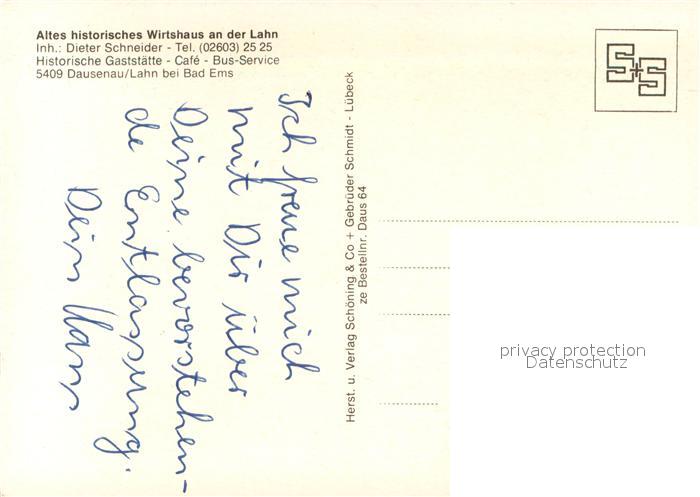 Altes historisches Wirtshaus an der Lahn
Inh.: Dieter Schneider - Tel. (02603) 25 25
Historische Gaststätte - Café - Bus-Service
5409 Dausenau/Lahn bei Bad Ems
Ich freue mich
mit Dir über
Deine bevorstehen-
de Entlassung.
Dein Hans
Herst. u. Verlag Schöning & Co + Gebrüder Schmidt - Lübeck
ze Bestellnr. Daus 64
S+S
privacy protection
Datenschutz